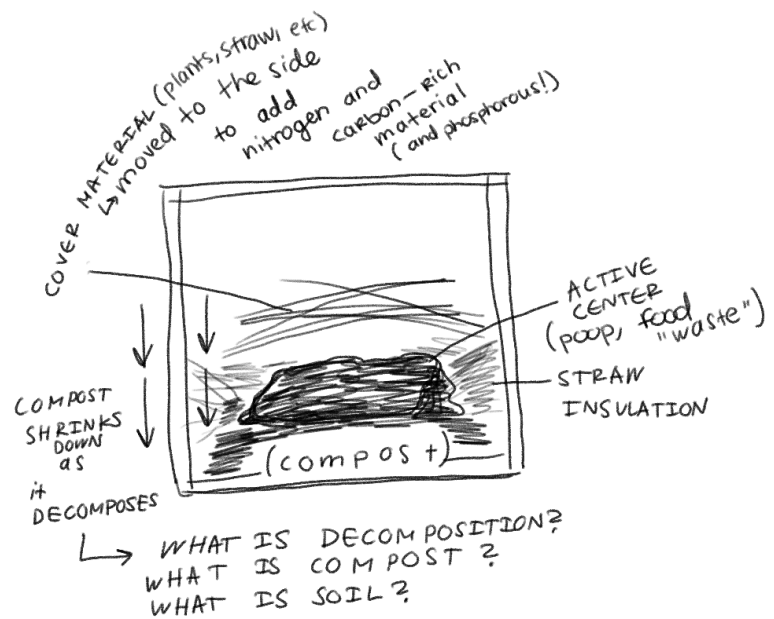 COVER MATERIAL (plants, straw, etc)
↳ moved to the side
to add
nitrogen and
carbon-rich
material
(and phosphorous!)
ACTIVE
CENTER
(poop, food
"waste")
STRAW
INSULATION
COMPOST
SHRINKS
DOWN
as
it
DECOMPOSES
(compost)
WHAT IS DECOMPOSITION?
WHAT IS COMPOST?
WHAT IS SOIL?